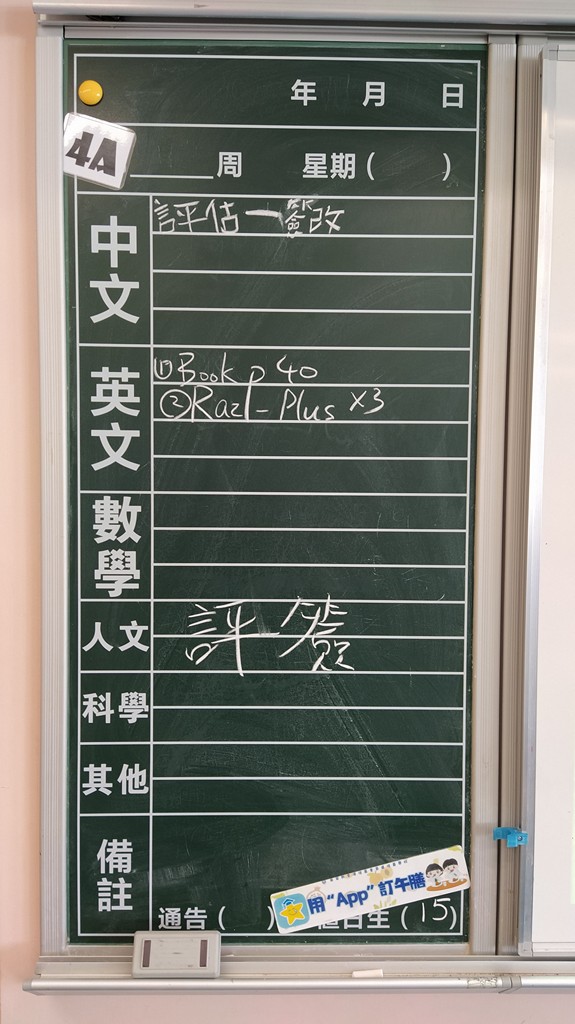 年 月 日
4A
周 星期( )
中文
評估一簽改
英文
①Book p 40
②Razl-Plus x3
數學
人文
評簽
科學
其他
備註
用“App”訂午膳
通告( ) 值日生(15)